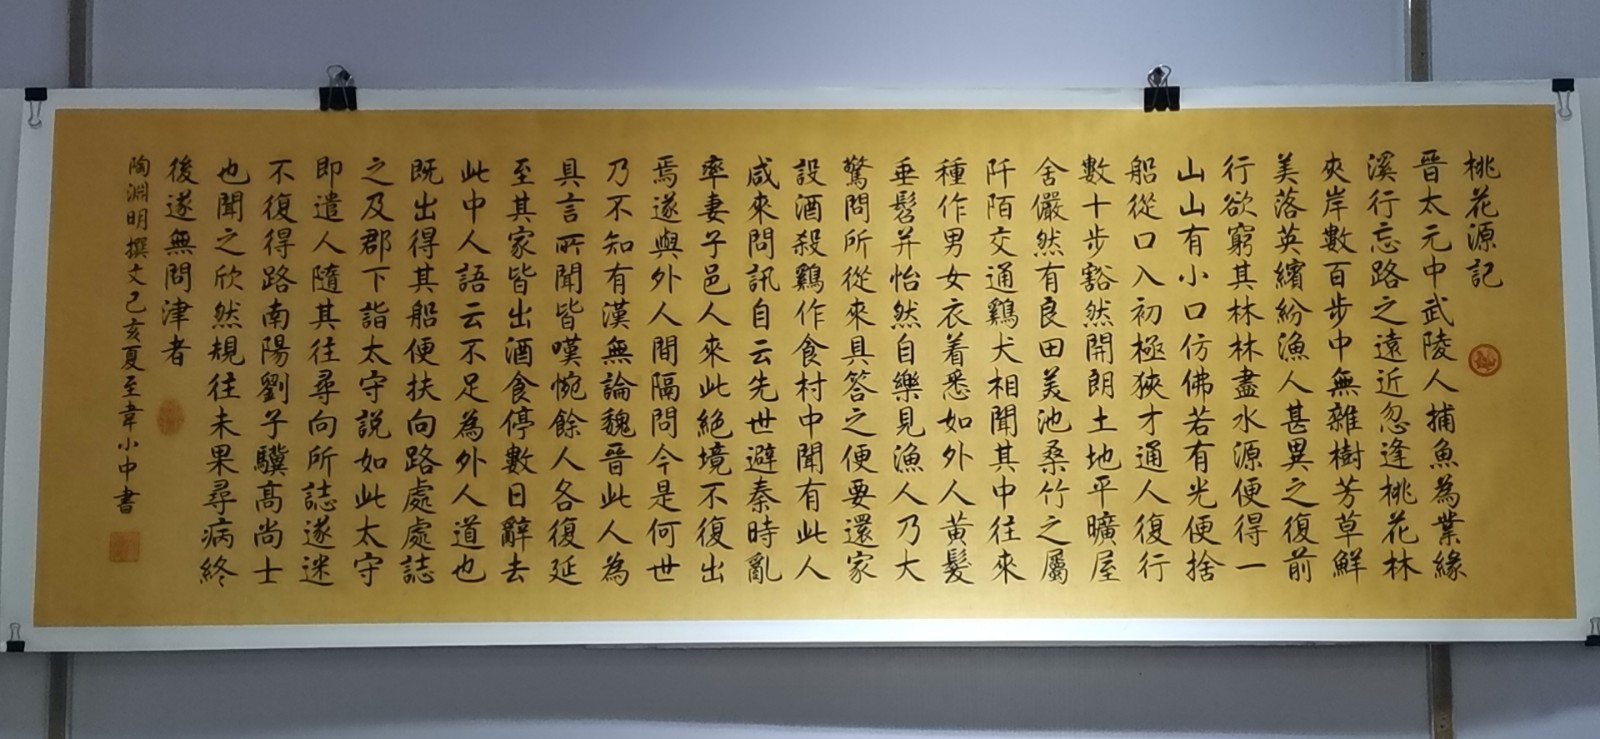 桃花源記
晉太元中武陵人捕魚為業緣
溪行忘路之遠近忽逢桃花林
夾岸數百步中無雜樹芳草鮮
美落英繽紛漁人甚異之復前
行欲窮其林林盡水源便得一
山山有小口仿佛若有光便捨
船從口入初極狹才通人復行
數十步豁然開朗土地平曠屋
舍儼然有良田美池桑竹之屬
阡陌交通鷄犬相聞其中往來
種作男女衣着悉如外人黃髮
垂髫并怡然自樂見漁人乃大
驚問所從來具答之便要還家
設酒殺鷄作食村中聞有此人
咸來問訊自云先世避秦時亂
率妻子邑人來此絕境不復出
焉遂與外人間隔問今是何世
乃不知有漢無論魏晉此人為
具言所聞皆嘆惋餘人各復延
至其家皆出酒食停數日辭去
此中人語云不足為外人道也
既出得其船便扶向路處處誌
之及郡下詣太守説如此太守
即遣人隨其往尋向所誌遂迷
不復得路南陽劉子驥高尚士
也聞之欣然規往未果尋病終
後遂無問津者
陶淵明撰文己亥夏至韋小中書